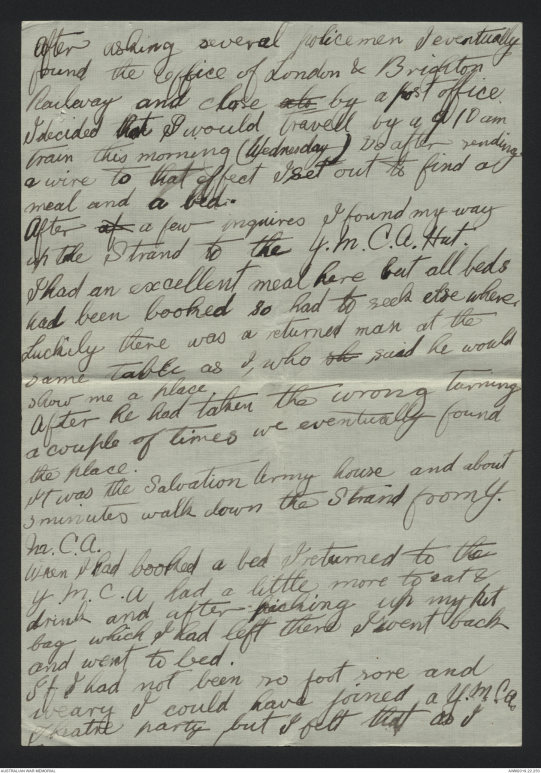 After asking several policemen I eventually
found the office of London & Brighton
Railway and close ato by a post office.
I decided that I would travell by a 9/10 am
train this morning (Wednesday) so after sending
a wire to that effect I set out to find a
meal and a bed.
After af a few inquires I found my way
up the Strand to the Y.M.C.A. Hut.
I had an excellent meal here but all beds
had been booked so had to seek else where.
Luckily there was a returned man at the
same table as I, who sh said he would
show me a place.
After he had taken the wrong turning
a couple of times we eventually found
the place.
It was the Salvation Army house and about
3 minutes walk down the Strand from Y.
M.C.A.
When I had booked a bed I returned to the
Y.M.C.A had a little more to eat &
drink and after picking up my kit
bag which I had left there I went back
and went to bed.
If I had not been so foot sore and
weary I could have joined a Y.M.C.A.
Theatre party but I felt that as I
AUSTRALIAN WAR MEMORIAL